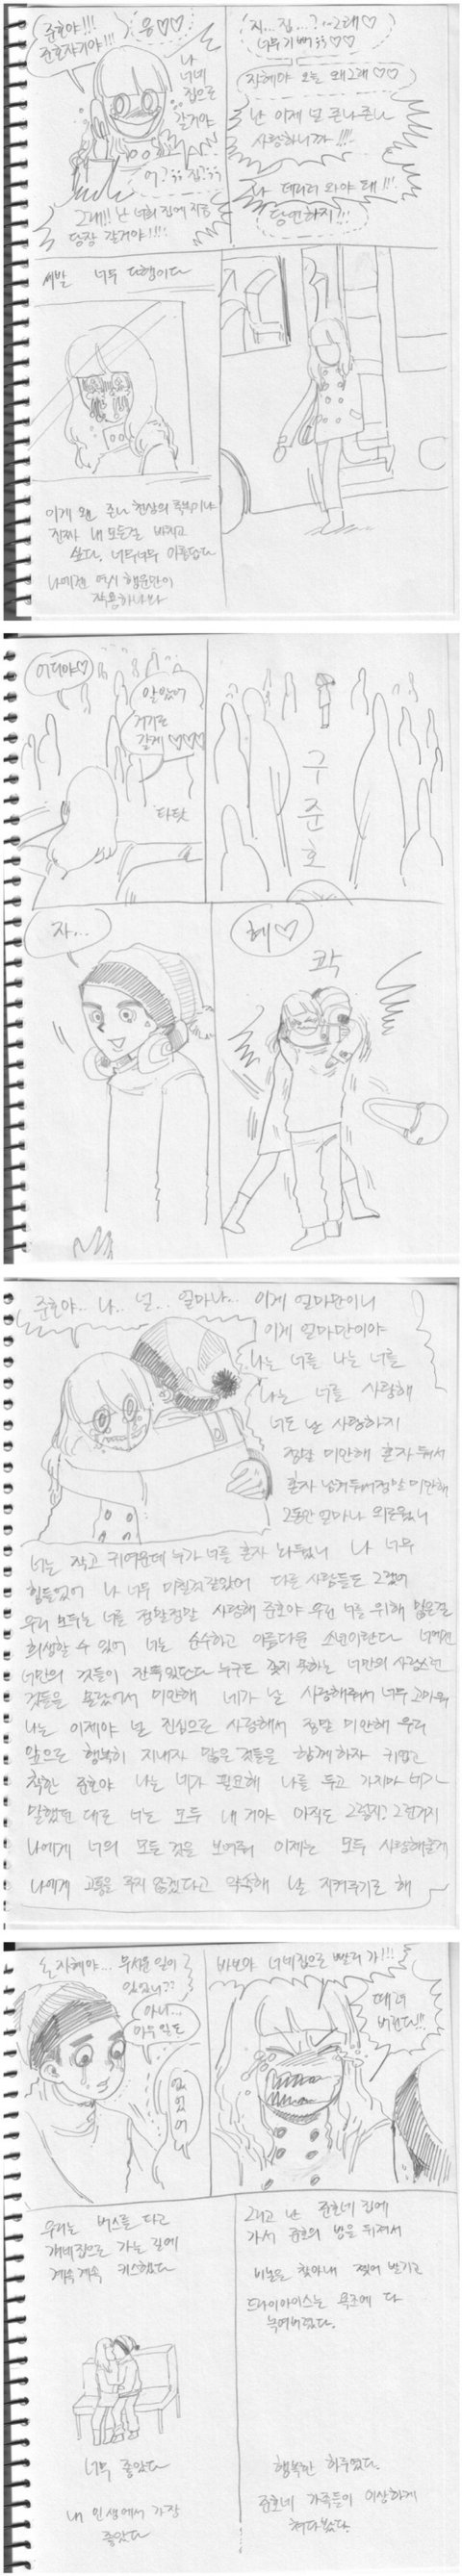 준호야!!!
준호자기야!!!
응♡♡
나
너네
집으로
갈거야
어?ㅎㅎ 집?ㅎㅎ
그래!! 난 너희 집에 지금
당장 갈거야!!!!
지...집...? 그래♡
너무 기뻐ㅎㅎ♡♡
지혜야 오늘 왜그래♡♡
난 이제 널 존나존나
사랑하니까!!!!
나 데리러 와야돼!!!
당연하지?!!
씨발 너무 다행이다
이게 웬 존나 천상의 축복이냐
진짜 내 모든걸 바치고
싶다. 너무너무 아름답다
나에겐 역시 행운만이
작용하나봐
어디야♡
알았어
거기로
갈게♡♡♡
타탓
구
준
호
자...
혜♡
콱
준호야.. 나.. 널.. 얼마나... 이게 얼마만이니
이게 얼마만이야
나는 너를 나는 너를
나는 너를 사랑해
너도 날 사랑하지
정말 미안해 혼자 둬서
혼자 남겨둬서 정말 미안해
그동안 얼마나 외로웠니
너는 작고 귀여운데 누가 너를 혼자 놔두겠니 나 너무
힘들었어 나 너무 미칠것같았어 다른 사람들도 그랬어
우리 모두는 너를 정말정말 사랑해 준호야 우린 너를 위해 많은걸
희생할 수 있어 너는 순수하고 아름다운 소년이란다 너에겐
너만의 것들이 잔뜩있단다 누구도 갖지 못하는 너만의 사랑스런
것들을 몰랐어서 미안해 네가 날 사랑해줘서 너무 고마워
나는 이제야 널 진심으로 사랑해서 정말 미안해 우리
앞으로 행복히 지내자 많은 것들을 함께하자 귀엽고
착한 준호야 나는 네가 필요해 나를 두고 가지마 네가
말했던 대로 너는 모두 내 거야 아직도 그렇지? 그런거지
나에게 너의 모든 것을 보여줘 이제는 모두 사랑해줄게
나에게 고통을 주지 않겠다고 약속해 날 지켜주기로 해
손지혜야... 무서운 일이
있었니??
아니...
아무 일도
없었어
바보야 너네집으로 빨리 가!!!
때려
버린다!!!
우리는 버스를 타고
걔네집으로 가는 길에
계속계속 키스했다
너무 좋았다
내 인생에서 가장
좋았다
그리고 난 준호네 집에
가서 준호의 방을 뒤져서
비닐을 찾아내 찢어 발기고
드라이아이스는 욕조에 다
녹여버렸다.
행복한 하루였다.
준호네 가족들이 이상하게
쳐다봤다.